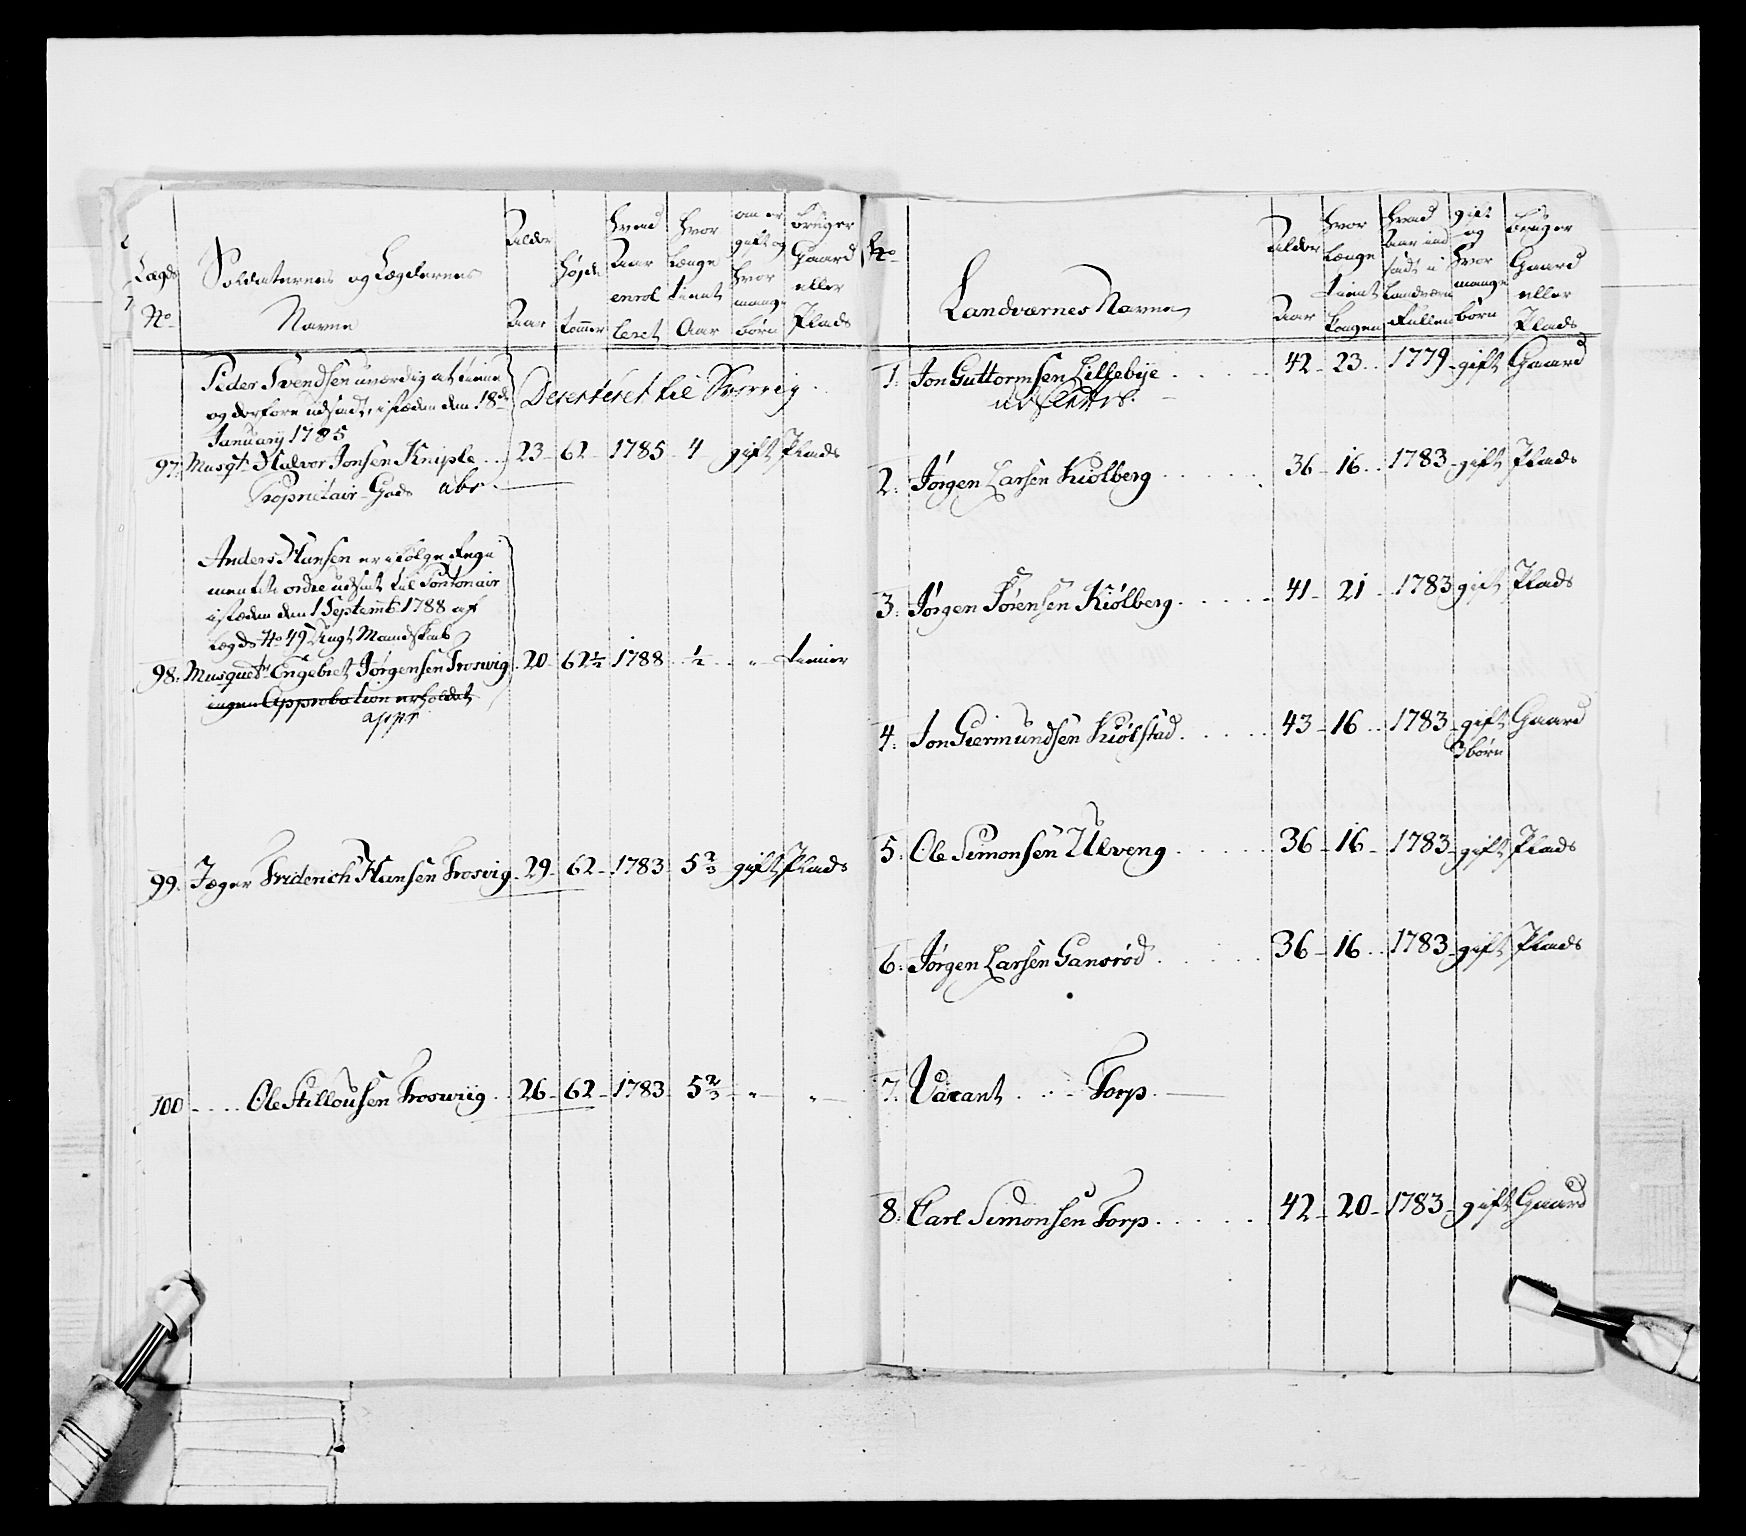 Lægds
No
Soldaternes og Lægdernes
Navne
Alder
Aar
Høyde
tommer
Hvad
Aar
enrol
leret
Hvor
længe
tient
Aar
om er
gift og
hvor
mange
børn
bruger
Gaard
eller
Plads
Peder Svendsen uværdig at tiene
og derfore udsadt, i stæden den 18de
January 1785
Deserteret til Sverrig
97. Musqt: Halvor Jonsen Kniple 23 - 62 - 1785 - 4 gift Plads
Proprietair Gods abr
Anders Hansen er i følge Regi
mentets ordre udsat til Pontonair
i stæden den 1 Septemb 1788 af
Lægds No 49 Ungt Mandskab
98. Musquetr Engebret Jørgensen Troswig 20 - 62½ 1788 ½ " tiener
ingen Approbation erholdet
appr
99. Jæger Friderich Hansen Trosvig 29 - 62 - 1783 5⅔ gift Plads
100 - . . . Ole Stillousen Troswiig 26 - 62 - 1783 5⅔ " "
No
Landværnes Navne
Alder
Aar
Hvor
længe
tient
Kongen
Hvad
Aar ind
sadt i
Landværn
Rullen
gift
og
hvor
mange
børn
bruger
Gaard
eller
Plads
1. Jon Guttormsen Lillebye 42 - 23 . . 1779 - gift Gaard
udslettes.
2. Jørgen Larsen Kiølberg 36 - 16 . . 1783 - gift Plads
3. Jørgen Sørensen Kiølberg 41 - 21 1783 gift Plads
4. Jon Giermundsen Kiølstad 43 - 16 . . 1783 - gift Gaard
3 børn
5. Ole Simonsen Ulveng 36 - 16 - 1783 - gift Plads
6. Jørgen Larsen Gansrød 36 - 16 . . 1783 - gift Plads
7. Vacant . . . Torp
8. Carl Simonsen Torp 42 - 20 - 1783 - gift Gaard